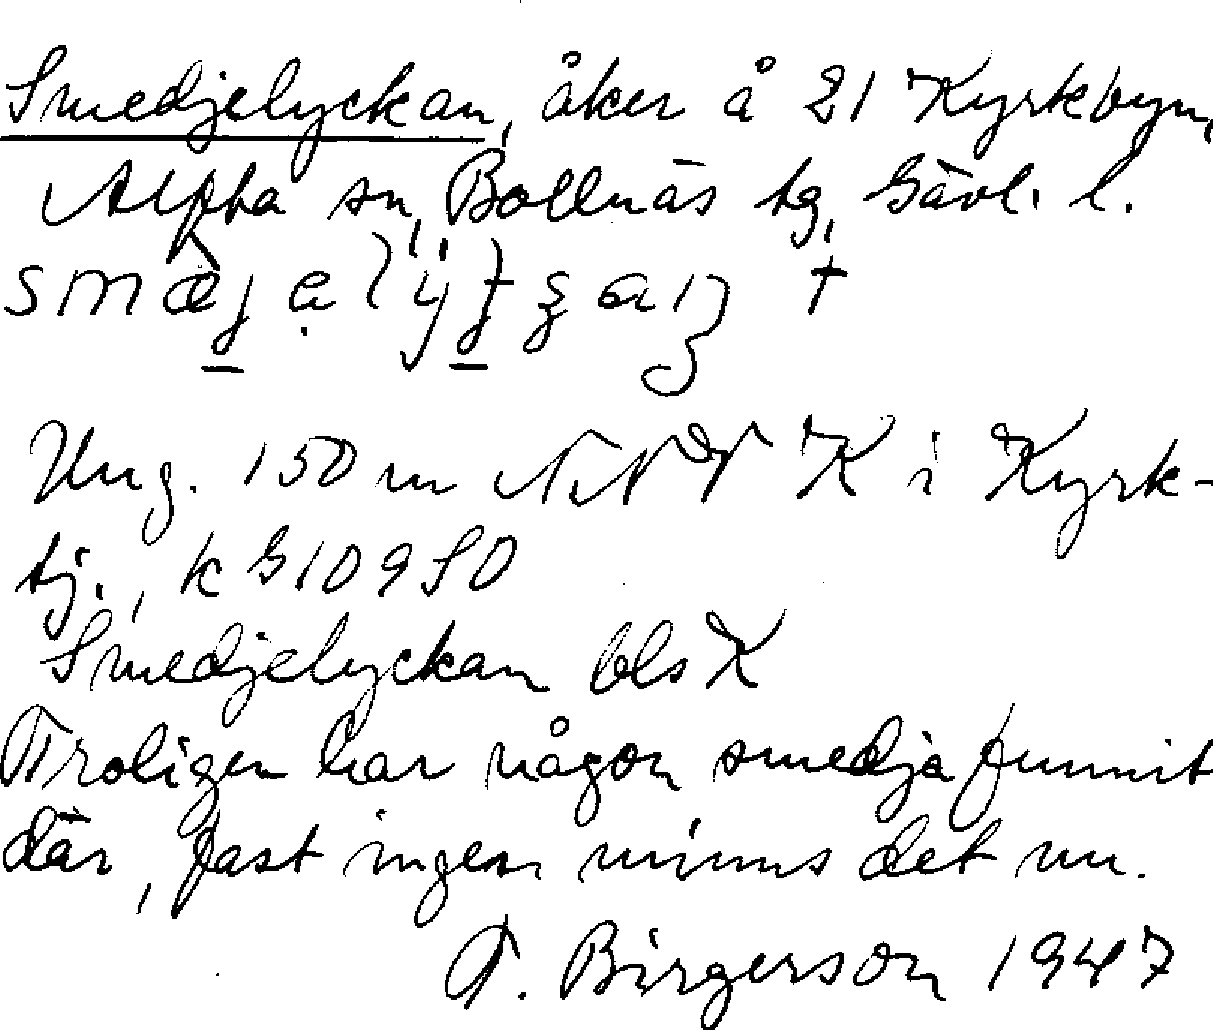 Smedjelyckan, åker å 21 Kyrkbyn,
Alfta sn, Bollnäs tg, Gävl. l.
Ung. 150 m NNV K i Kyrk-
tj., k G10950
Smedjelyckan bls K
Troligen har någon smedja funnit
där, fast ingen minns det nu.
T. Birgerson 1947